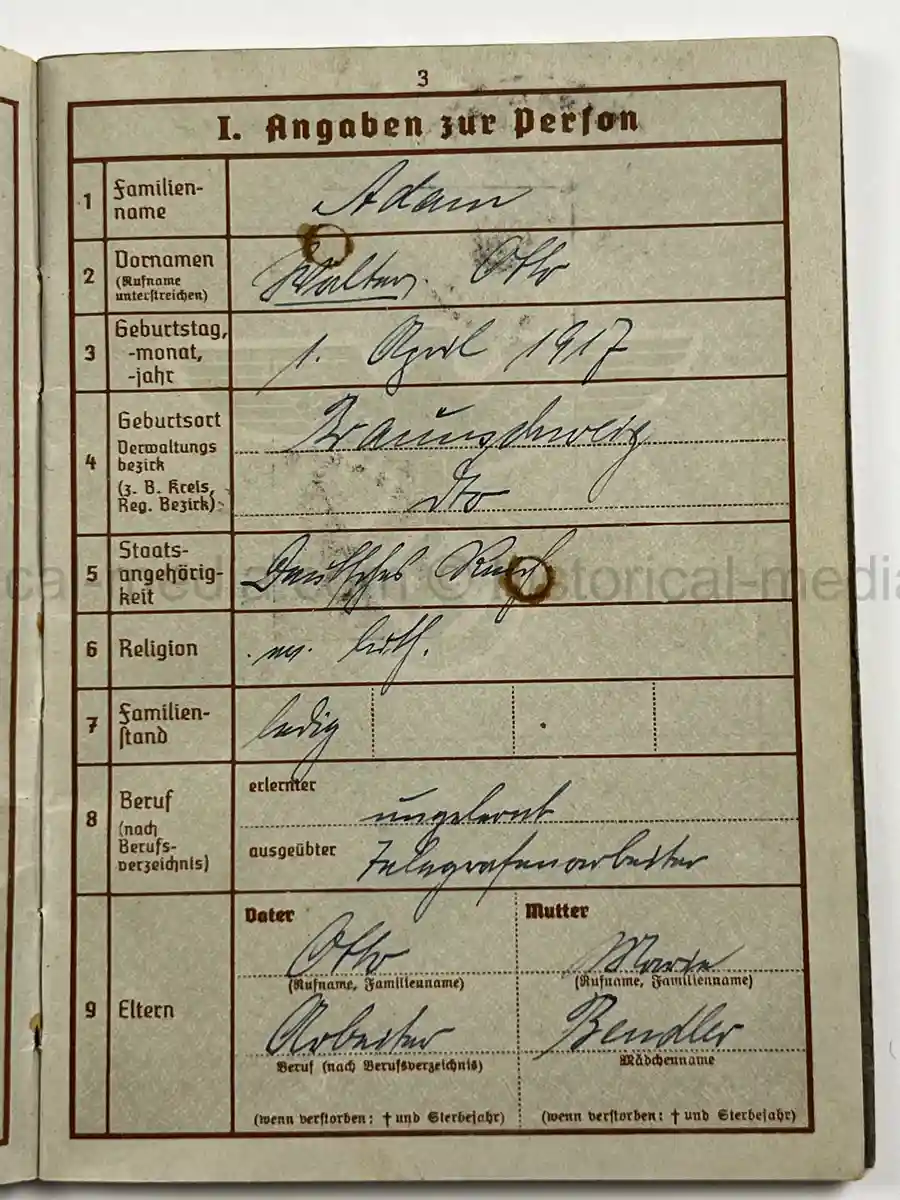 3
I. Angaben zur Person
1 Familien-
name
Adam
2 Vornamen
(Rufname
unterstreichen)
Walter, Otto
3 Geburtstag,
-monat,
-jahr
1. April 1917
4 Geburtsort
Verwaltungs
bezirk
(z. B. Kreis,
Reg. Bezirk)
Braunschweig
dto
5 Staats-
angehörig-
keit
Deutsches Reich
6 Religion
ev. luth.
7 Familien-
stand
ledig
8 Beruf
(nach
Berufs-
verzeichnis)
erlernter
ungelernt
ausgeübter
Telegrafenarbeiter
9 Eltern
Vater
Otto
(Rufname, Familienname)
Arbeiter
Beruf (nach Berufsverzeichnis)
(wenn verstorben: † und Sterbejahr)
Mutter
Marie
(Rufname, Familienname)
Bendler
Mädchenname
(wenn verstorben: † und Sterbejahr)
© historical-media